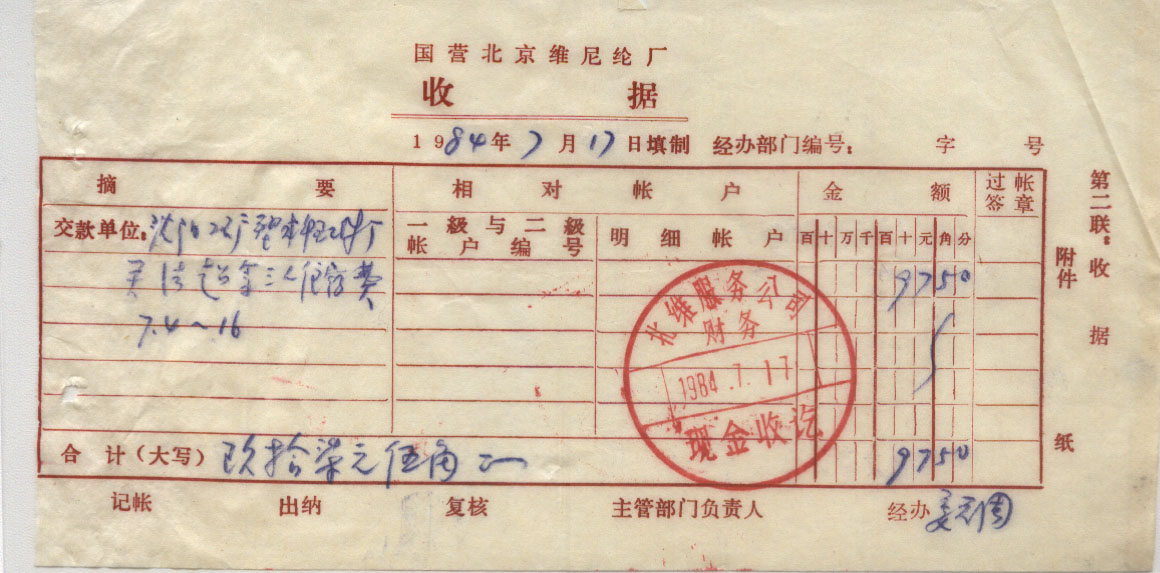 国营北京维尼纶厂
收据
1984年7月17日填制 经办部门编号: 字 号
摘要 相对帐户 金额 过帐签章
交款单位: 一级与二级帐户编号 明细帐户 百十万千百十元角分
三人住宿费 9750
7.4~16
北维服务公司
财务
1984.7.17
现金收讫
合计(大写) 玖拾柒元伍角 9750
记帐 出纳 复核 主管部门负责人 经办
第二联:收据
附件 纸